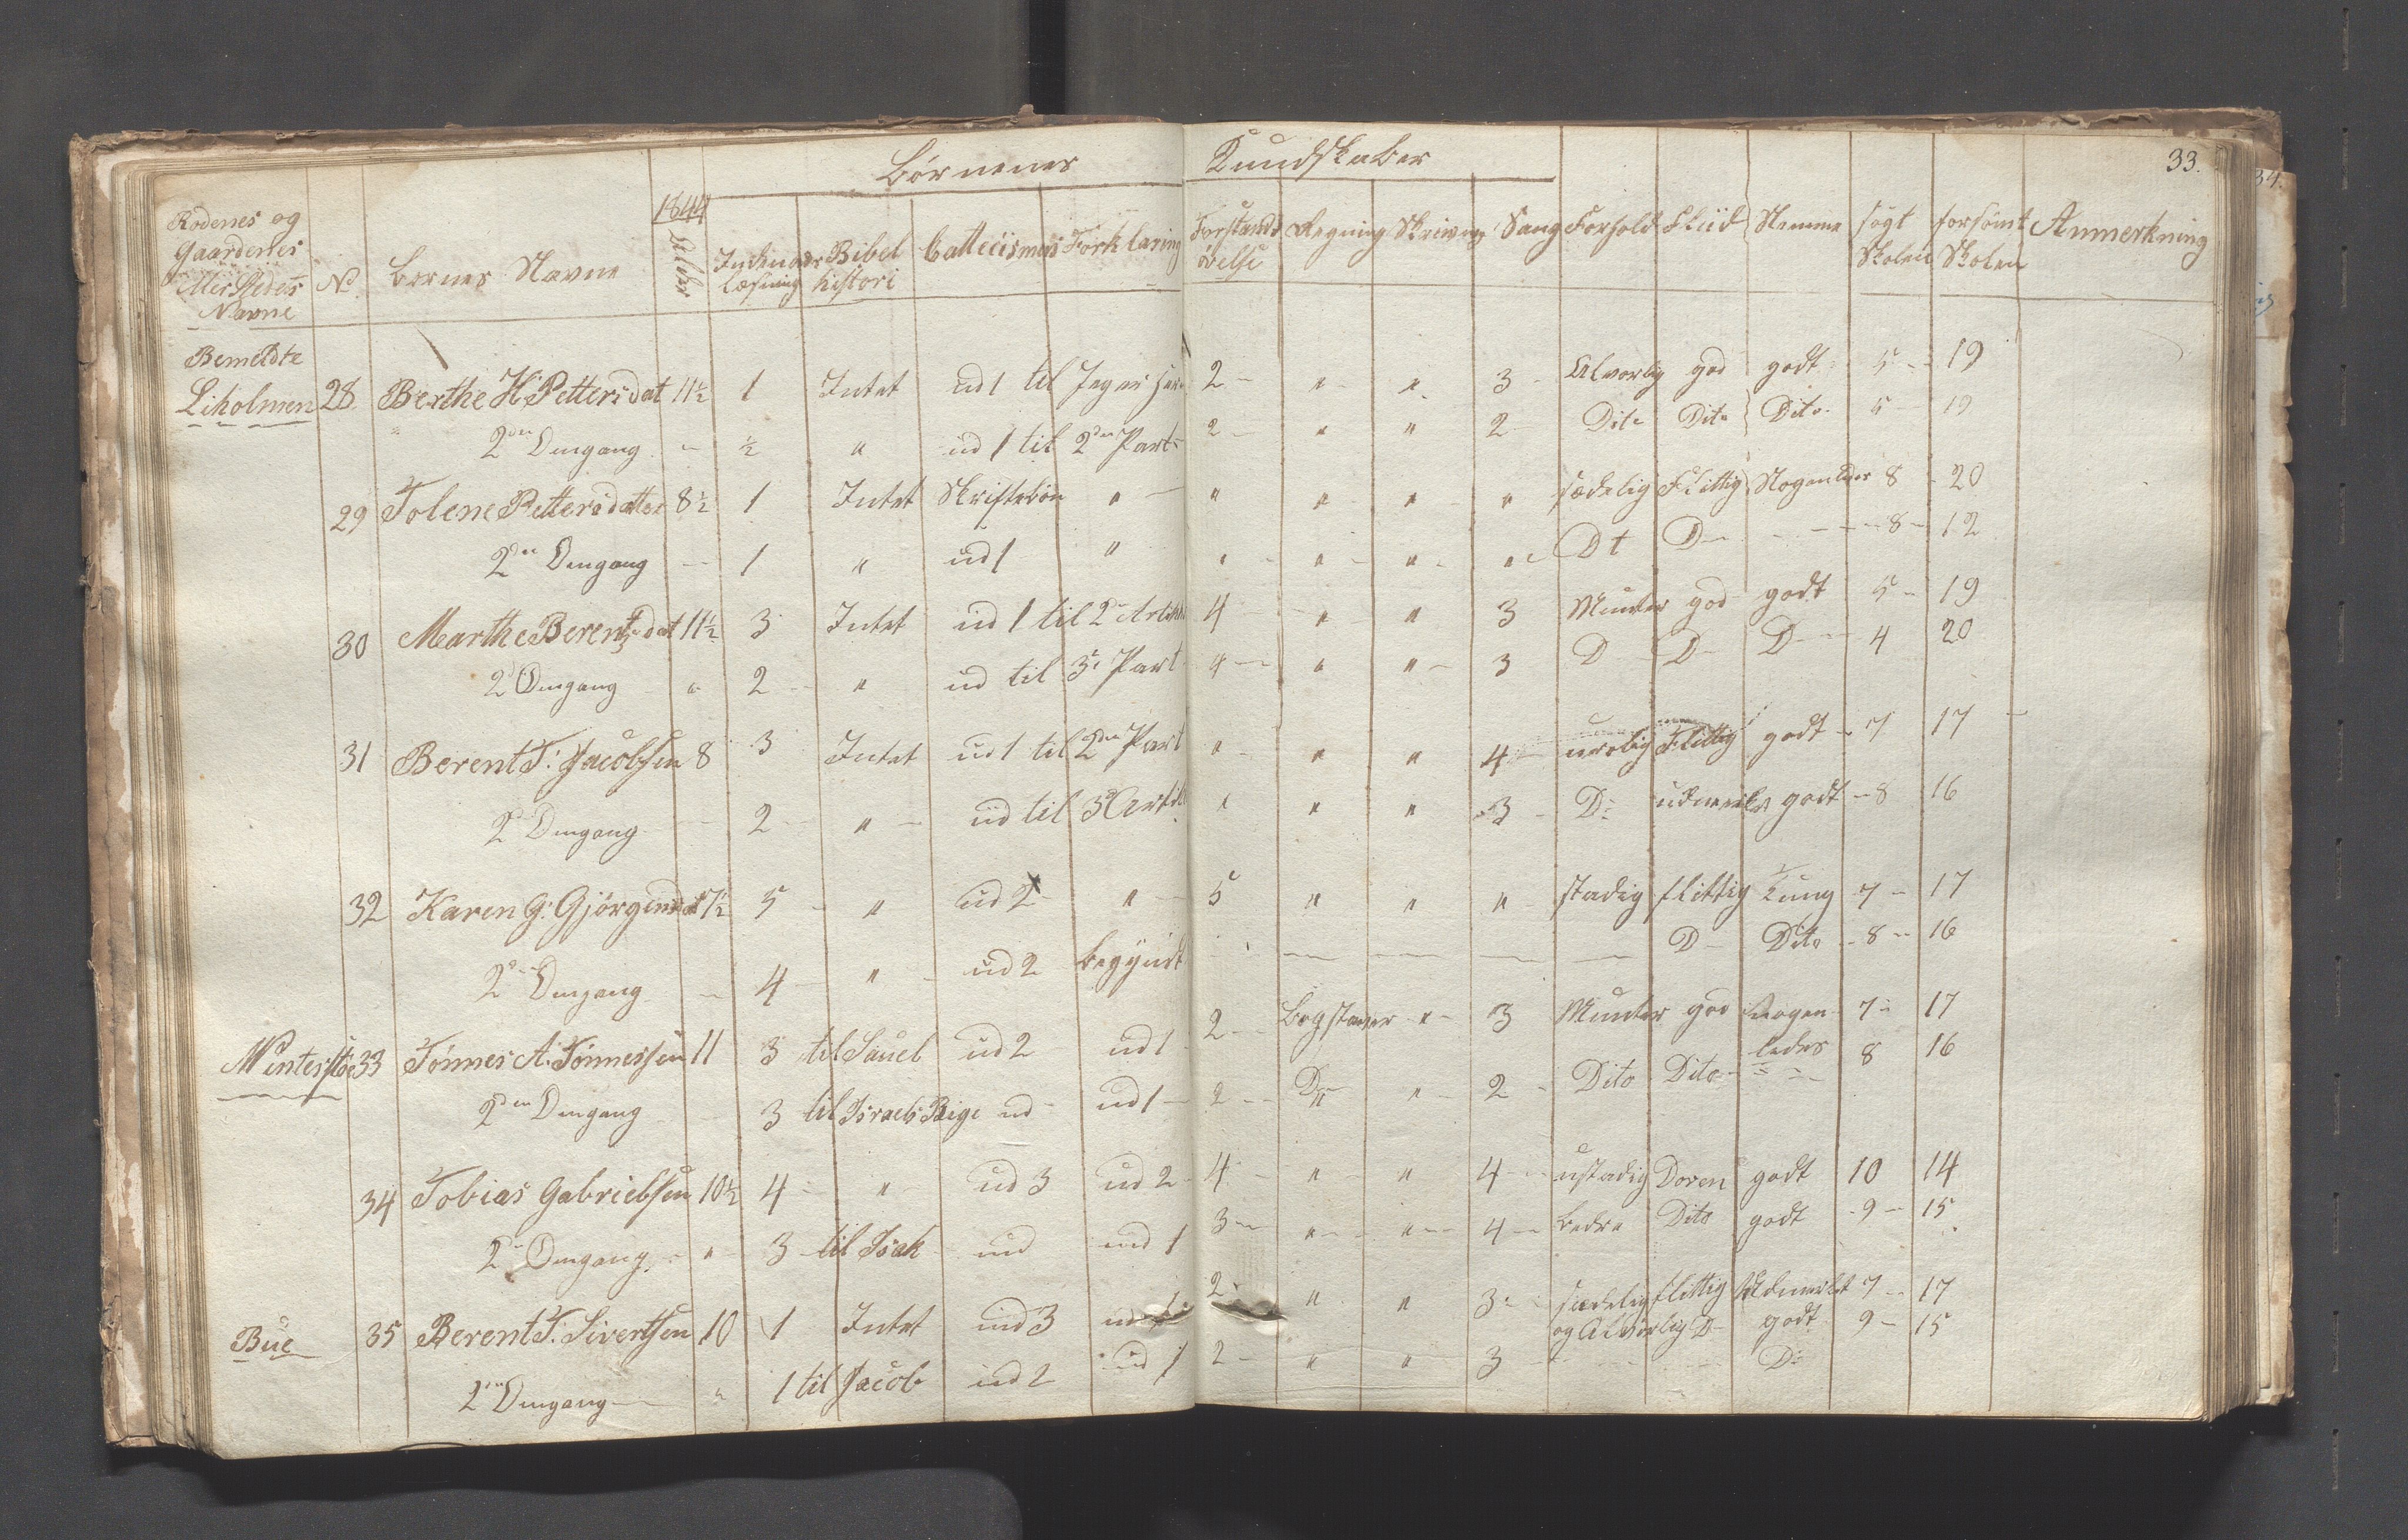 33.
Børnenes Kundskaber
Rodenes og Gaardenes eller Stedets Navne | No | Bornes Navne | 1844 Alder | Indenads læsning | Bibel histori | Catteciismus | Forklaring | Forstands øvelse | Regning | Skrivning | Sang | Forhold | Fliid | Nemme | søgt Skolen | forsømt Skolen | Anmerkning
Bemeldte
Liholmen 28 Berthe H. Pettersdat 11½ 1 Intet ud 1 til 2 - " - " 3 - Alvorlig god godt 5 - 19
2den Omgang - ½ " ud 1 til 2den Part 2 - " " 2 Dito Dito Dito 5 - 19
29 Tolene Pettersdatter 8½ 1 Intet Skriftebøn " " " " " sædelig Flittig Nogenledes 8 - 20
2den Omgang - 1 " ud 1 " " " " " Dt D - - 8 - 12
30 Marthe Berentsdat 11½ 3 Intet ud 1 til 2den 4 " " 3 Munter god godt 5 - 19
2d Omgang " 2 - " ud til 3die Part 4 - " " - 3 D - D - D - 4 20
31 Berent T. Jacobsen 8 3 Intet ud 1 til 2den Part " " " 4 - urolig Flittig godt - 7 17
2d Omgang - 2 - " - ud til 3d " " " 3 - Do udmerket godt - 8 16
32 Karen G: Gjörgensdat 7½ 5 - " ud 2 " 5 " " " stadig flittig Tung 7 - 17
2d Omgang - 4 - " - ud 2 begyndt D - Dito - 8 - 16
Winterstø 33 Tønnes A. Tønnessen 11 3 til Sauel ud 2 ud 1 2 - Bogstaver " - 3 Munter god nogen- 7 - 17
2den Omgang - 3 til Israels Rige ud - ud 1 - 2 - Do " " - 2 - Dito Dito - ledes 8 16
34 Tobias Gabrielsen 10½ 4 - " ud 3 ud 2 - 4 - " - " 4 - ustadig Doven godt 10 14
2d Omgang - " - 3 - til Isak ud ud 1 3 - " - " - 4 - bedre Dito godt - 9 - 15
Bue 35 Berent T. Sivertsen 10 1 Intet ud 3 ud 2 - " " 3 - sædelig flittig Udmerket 7 - 17
og Alvorlig D - godt 9 - 15
2den Omgang - " 1 til Jacob ud 2 ud 1 2 - " " 3 - Do